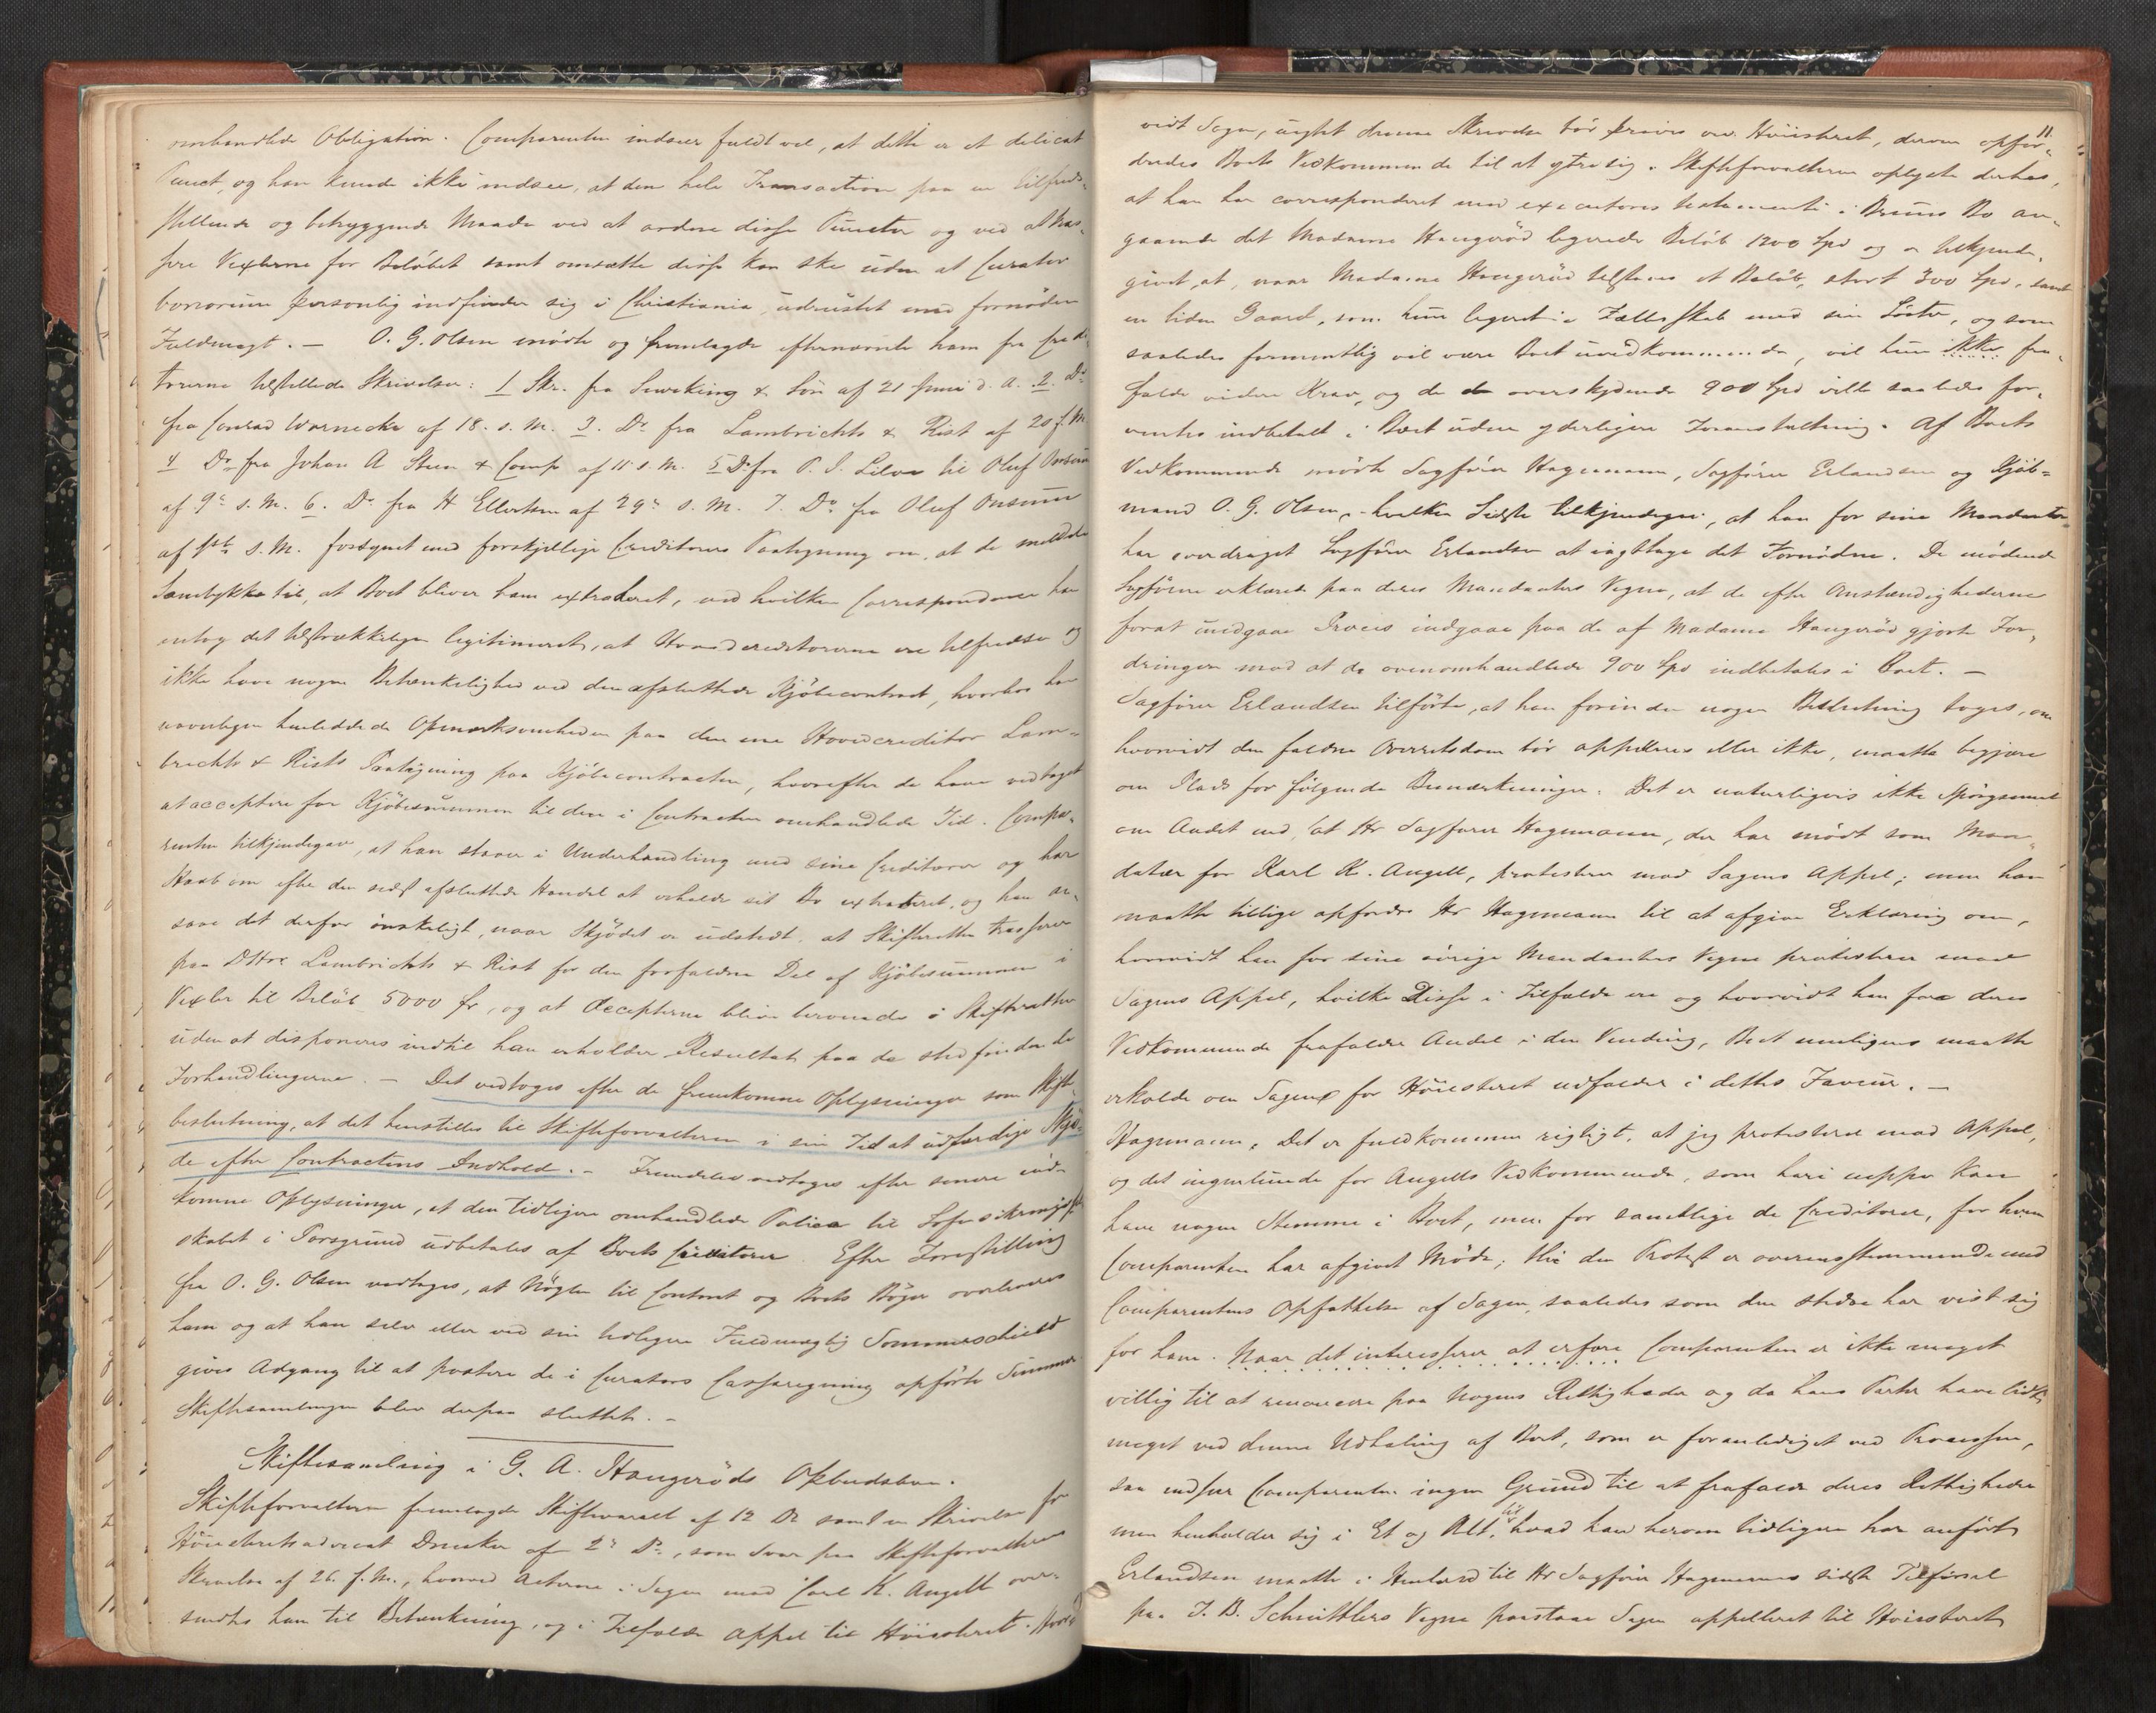 omhandlede Obligation. Comparenten indsaaer fuldt vel, at dette er et delicat
Punct, og han kunde ikke indsee, at den hele Transaction paa en tilfreds-
stillende og betryggende Maade ved at ordne disse Puncter og ved at tras-
sere Vexlerne for Beløbet samt omsætte disse kan ske uden at Curator
bonorum personlig indfinder sig i Christiania, udrustet med fornøden
Fuldmagt. — O. G. Olsen mødte og fremlagde efternævnte ham fra Credi-
torerne tilstillede Skrivelser: 1 Skr. fra Suwcking & Søn af 21 Juni d. A. 2. Do
fra Conrad Warnecke af 18. s. M. 3. Do fra Lambrichts & Rist af 20 f. M.
4 Do fra Johan A Steen & Comp af 11 s. M. 5 Do fra P. J. Silva til Oluf Onsum
af 9de s. M. 6. Do fra H Ellertsen af 29de s. M. 7. Do fra Oluf Onsum
af 1ste s. M. forsynet med forskjellige Creditorers Paategning om, at de meddele
Samtykke til, at Boet bliver ham extraderet, ved hvilken Correspondance han
antog det tilstrækkeligen legitimeret, at Hovedcreditorerne ere tilfredse og
ikke have nogen Betænkelighed ved den afsluttede Kjøbecontract, hvorhos han
navnligen henledede Opmærksomheden paa den ene Hovedcreditor Lam-
brichts & Rists Paategning paa Kjøbecontracten, hvorefter de have vedtaget
at acceptere for Kjøbesummen til den i Contracten omhandlede Tid. Compa-
renten tilkjendegav, at han staaer i Underhandling med sine Creditorer og har
Haab om efter den sidst afsluttede Handel at erholde sit Bo extraderet, og han an-
saae det derfor ønskeligt, naar Skjødet er udstedt, at Skifteretten trasserer
paa DHrr Lambrichts & Rist for den forfaldne Del af Kjøbesummen i
Vexler til Beløb 5000 fr, og at Accepterne blive beroende i Skifteretten
uden at disponeres indtil han erholder Resultat paa de stedfindende
Forhandlingerne. — Det vedtoges efter de fremkomne Oplysninger som Skifte-
beslutning, at det henstilles til Skifteforvalteren i sin Tid at udfærdige Skjø-
de efter Contractens Indhold. — Fremdeles vedtoges efter senere ind-
komne Oplysninger, at den tidligere omhandlede Police til Søforsikringssel-
skabet i Porsgrund udbetales af Boets Creditorer. Efter Forestilling
fra O. G. Olsen vedtoges, at Nøglen til Contoret og Boets Bøger overleveres
ham og at han selv eller ved sin tidligere Fuldmægtig Sommerschield
gives Adgang til at postere de i Curators Casseregning opførte Summer.
Skiftesamlingen blev derpaa sluttet. —
Skiftesamling i G. A. Haugerøds Opbudsbo.
Skifteforvalteren fremlagde Skiftevarsel af 12 Ds samt en Skrivelse fra
Høiesteretsadvocat Duncker af 2de Ds., som Svar paa Skifteforvalterens
Skrivelse af 26. f. M., hvorved Acterne i Sagen mod Carl K. Angell over-
sendtes ham til Betænkning, og i Tilfælde Appel til Høiesteret.
11.
vidt Sagen, uagtet denne Skrivelse bør prøves ved Høiesteret, derom opfor-
dredes Boets Vedkommende til at ytre sig. Skifteforvalteren oplyste derhos,
at han har correspondert med executores testamenti i Bruuns Bo an-
gaaende det Madame Haugerød legerede Beløb 1200 Spd og er tilkjende-
givet, at, naar Madame Haugerød tilstaaes et Beløb, stort 300 Spd, samt
en liden Gaard, som hun legeret i Fællesskab med sin Søster, og som
saaledes formentlig vil være Boet uvedkommende, vil hun ikke fra-
falde videre Krav, og de overskydende 900 Spd ville saaledes for-
ventes indbetalt i Boet uden yderligere Foranstaltning. Af Boets
Vedkommende mødte Sagfører Hagemann, Sagfører Erlandsen og Kjøb-
mand O. G. Olsen, hvilken Sidste tilkjendegav, at han for sine Mandanter
har overdraget Sagfører Erlandsen at iagttage det Fornødne. De mødende
Sagførere erklærede paa deres Mandanters Vegne, at de efter Omstændighederne
forat undgaae Proces indgaae paa de af Madame Haugerød gjorte For-
dringer mod at de ovenomhandlede 900 Spd indbetales i Boet. —
Sagfører Erlandsen tilførte, at han forinden nogen Beslutning toges, om
hvorvidt den faldne Overretsdom bør appelleres eller ikke, maatte begjære
om Plads for følgende Bemærkninger. Det er naturligvis ikke Spørgsmaal
om Andet end, at Hr Sagfører Hagemann, der har mødt som Man-
datar for Karl K. Angell, protesterer mod Sagens Appel; men han
maatte tillige opfordre Hr Hagemann til at afgive Erklæring om,
hvorvidt han for sine øvrige Mandanters Vegne protesterer mod
Sagens Appel, hvilke Disse i Tilfælde ere og hvorvidt han for deres
Vedkommende frafalder Andel i den Vinding, Boet muligens maatte
erholde om Sagen for Høiesteret udfalder i dettes Faveur. —
Hagemann. Det er fuldkommen rigtigt, at jeg protesterer mod Appel,
og det ingenlunde for Angells Vedkommende, som heri neppe kan
have nogen Stemme i Boet, men for samtlige de Creditorer, for hvem
Comparenten har afgivet Møde; thi den Protest er overensstemmende med
Comparentens Opfattelse af Sagen, saaledes som den stedse har vist sig
for ham. Naar det interesserer at erfare Comparenten er ikke meget
villig til at renoncere paa Nogens Rettigheder og da hans Parter have lidt
meget ved denne Udhaling af Boet, som er foranlediget ved Processen,
saa indseer Comparenten ingen Grund til at frafalde deres Rettigheder
men henholder sig i Et og Alt til, hvad han herom tidligere har anført
Erlandsen maatte i Henhold til Hr Sagfører Hagemanns sidste Tilførsel
paa J. B. Schmittlers Vegne paastaae Sagen appelleret til Høiesteret